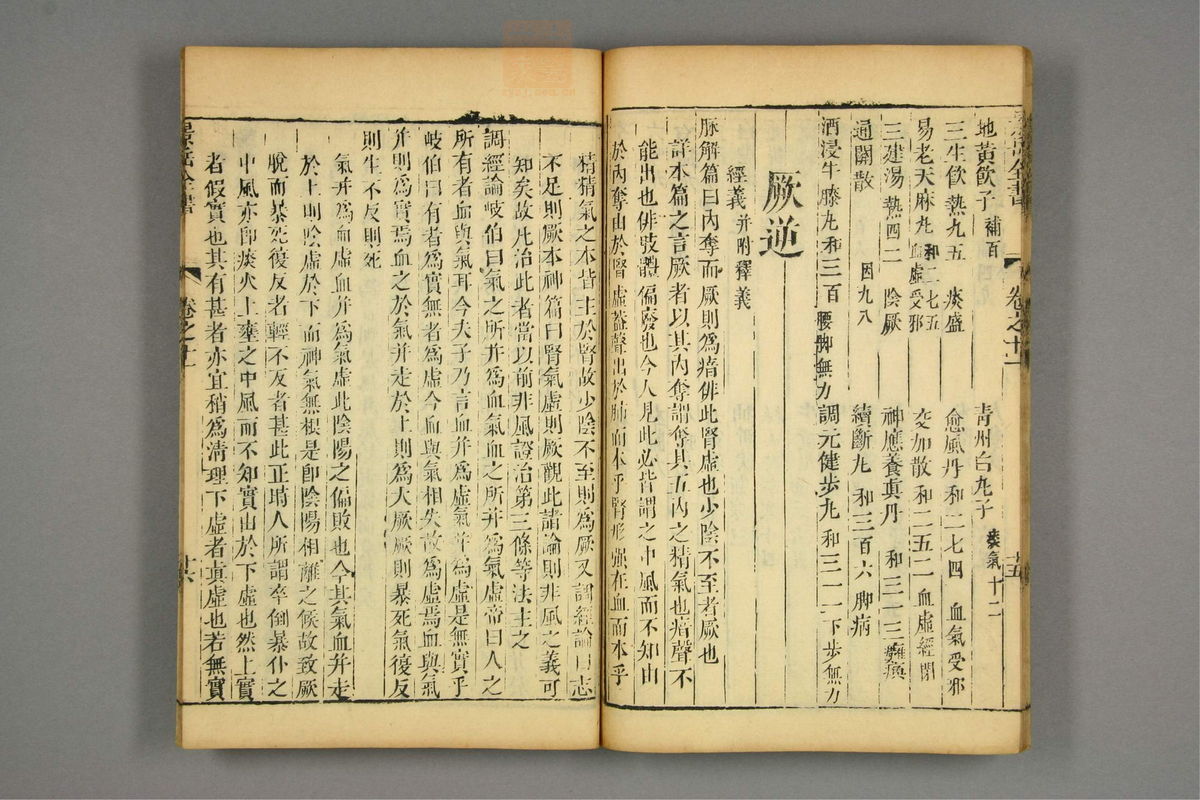 地黃飲子 補百 青州白丸子 痰氣 十二
三生飲 熱九五 痰盛 愈風丹 和二七四 血氣受邪
易老天麻丸 和二七五 血虛受邪 交加散 和二五二 血虛經閉
三建湯 熱四二 陰厥 神應養真丹 和三一三 癱瘓
通關散 因九八 續斷丸 和三百六 脚病
酒浸牛膝丸 和三百 腰脚無力 調元健步丸 和三一一 下步無力
厥逆
經義 并附釋義
脉解篇曰内奪而厥則爲瘖俳此腎虛也少陰不至者厥也
詳本篇之言厥者以其内奪謂奪其五内之精氣也瘖聲不
能出也俳肢體偏廢也今人見此必皆謂之中風而不知由
於内奪由於腎虛葢聲出於肺而本乎腎形强在血而本乎
精精氣之本皆主於腎故少陰不至則爲厥又調經論曰志
不足則厥本神篇曰腎氣虛則厥觀此諸論則非風之義可
知矣故凡治此者當以前非風證治第三條等法主之
調經論岐伯曰氣之所并爲血氣血之所并爲氣虛帝曰人之
所有者血與氣耳今夫子乃言血并爲虛氣并爲虛是無實乎
岐伯曰有者爲實無者爲虛今血與氣相失故爲虛焉血與氣
并則爲實焉血之於氣并走於上則爲大厥厥則暴死氣復反
則生不反則死
氣并爲血虛血并爲氣虛此陰陽之偏敗也今其氣血并走
於上則陰虛於下而神氣無根是卽陰陽相離之候故致厥
脫而暴死復反者輕不反者甚此正時人所謂卒倒暴仆之
中風亦卽痰火上壅之中風而不知實由於下虛也然上實
者假實也其有甚者亦宜稍爲清理下虛者真虛也若無實
卷之十一
十五
景岳全書
卷之十一
十六